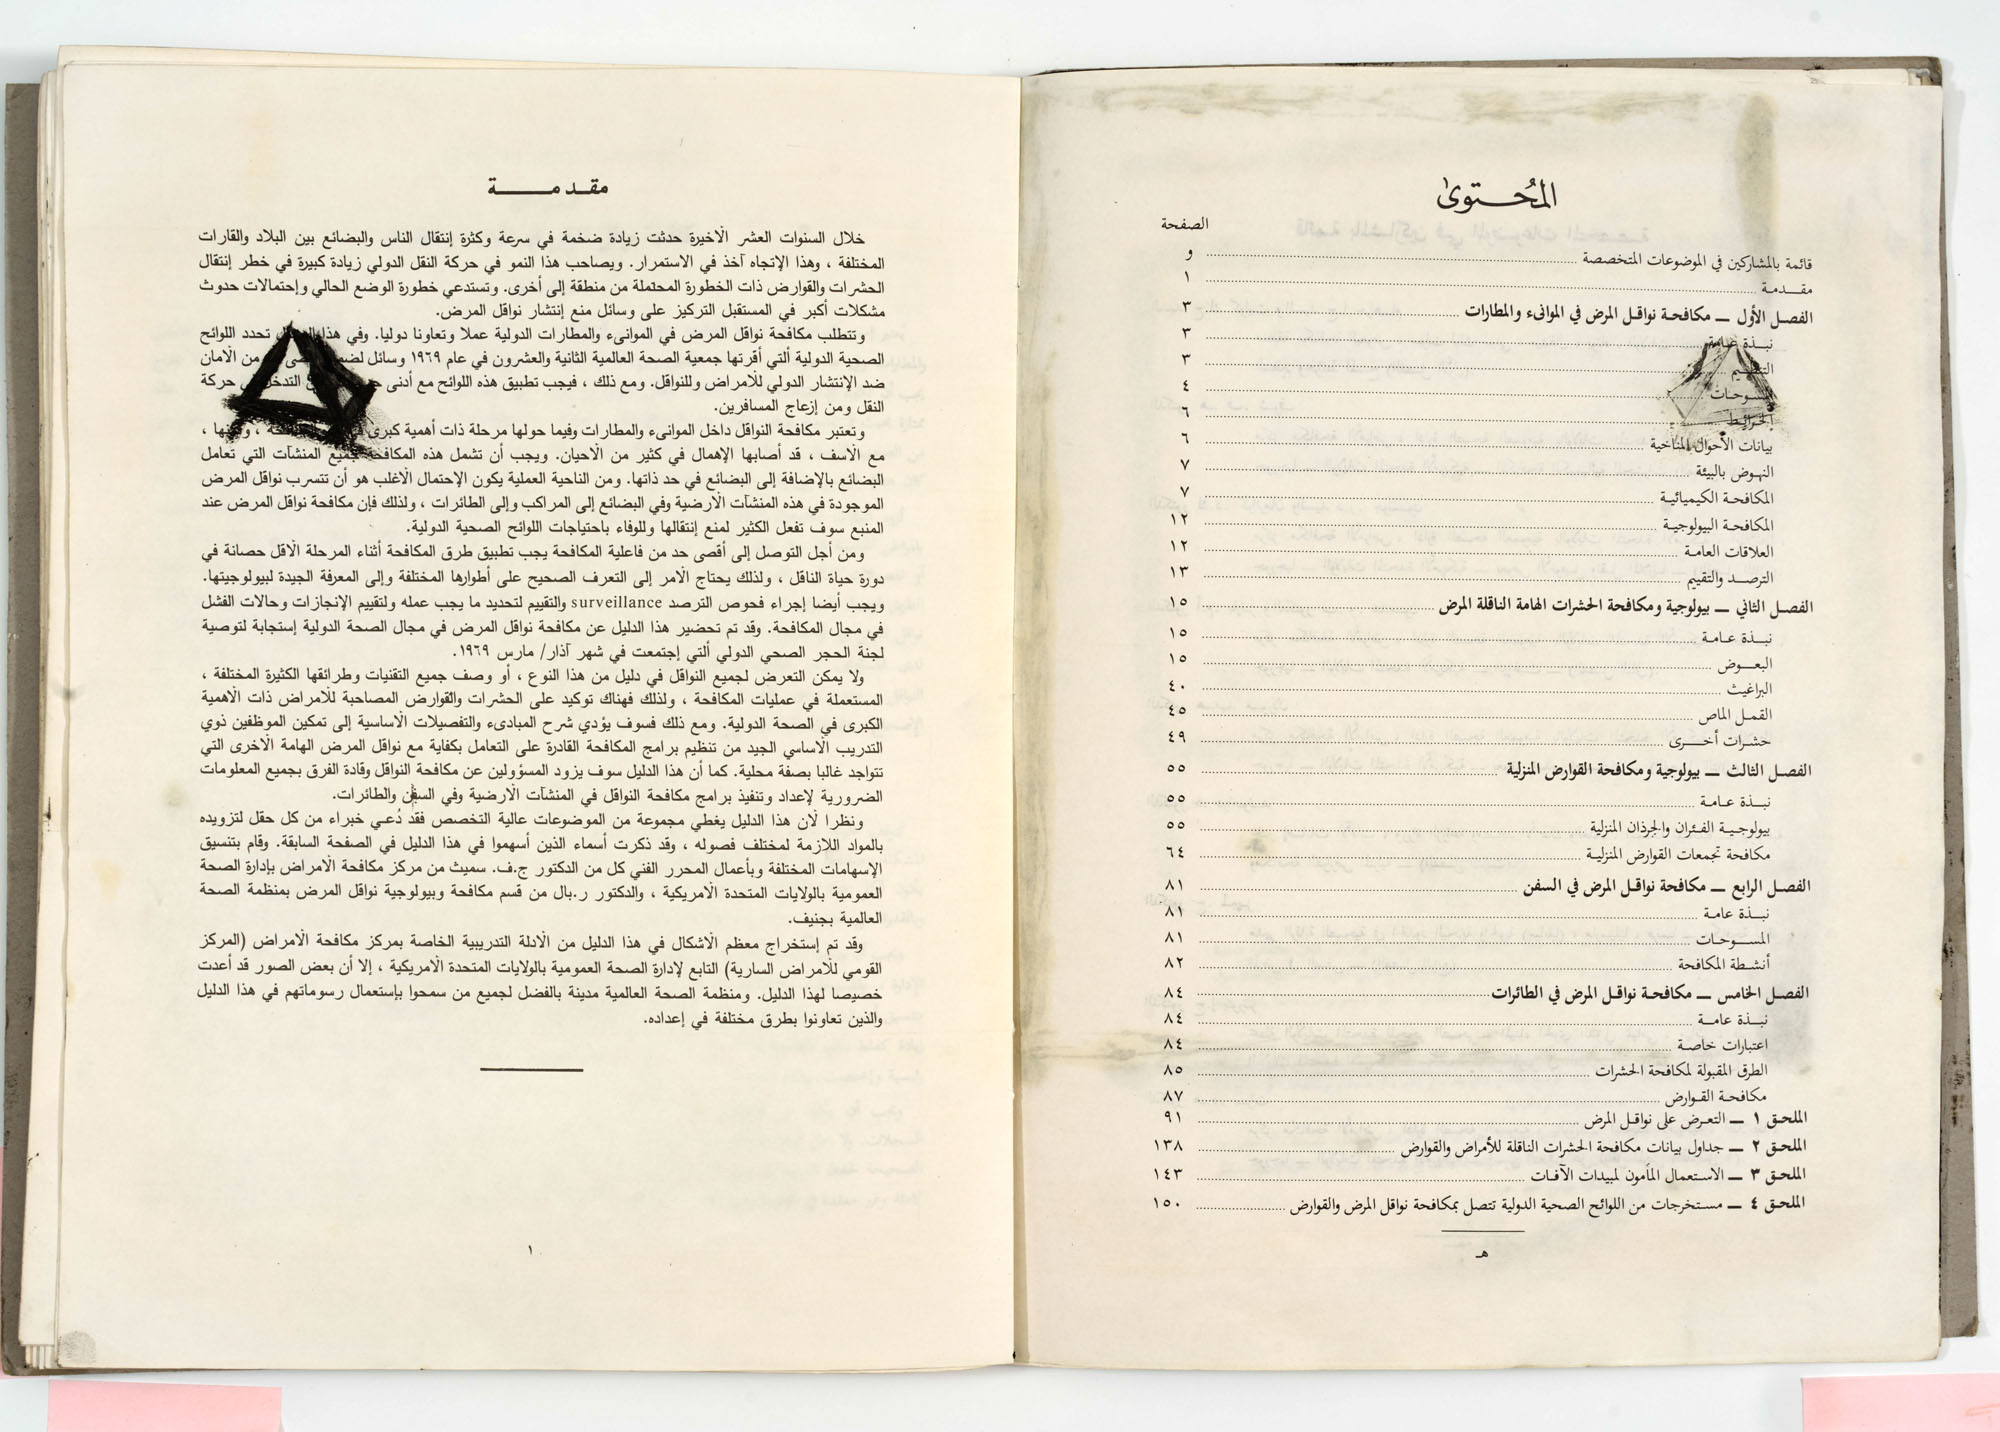 المُحتوى
الصفحة
قائمة بالمشاركين في الموضوعات المتخصصة و
مقدمة ١
الفصل الأول ــ مكافحة نواقل المرض في الموانىء والمطارات ٣
نبذة عامة ٣
التنظيم ٣
المسوحات ٤
الخرائط ٦
بيانات الأحوال المناخية ٦
النهوض بالبيئة ٧
المكافحة الكيميائية ٧
المكافحة البيولوجية ١٢
العلاقات العامة ١٢
الترصد والتقييم ١٣
الفصل الثاني ــ بيولوجية ومكافحة الحشرات الهامة الناقلة المرض ١٥
نبذة عامة ١٥
البعوض ١٥
البراغيث ٤٠
القمل الماص ٤٥
حشرات أخرى ٤٩
الفصل الثالث ــ بيولوجية ومكافحة القوارض المنزلية ٥٥
نبذة عامة ٥٥
بيولوجية الفئران والجرذان المنزلية ٥٥
مكافحة تجمعات القوارض المنزلية ٦٤
الفصل الرابع ــ مكافحة نواقل المرض في السفن ٨١
نبذة عامة ٨١
المسوحات ٨١
أنشطة المكافحة ٨٢
الفصل الخامس ــ مكافحة نواقل المرض في الطائرات ٨٤
نبذة عامة ٨٤
اعتبارات خاصة ٨٤
الطرق المقبولة لمكافحة الحشرات ٨٥
مكافحة القوارض ٨٧
الملحق ١ ــ التعرض على نواقل المرض ٩١
الملحق ٢ ــ جداول بيانات مكافحة الحشرات الناقلة للأمراض والقوارض ١٣٨
الملحق ٣ ــ الاستعمال المأمون لمبيدات الآفات ١٤٣
الملحق ٤ ــ مستخرجات من اللوائح الصحية الدولية تتصل بمكافحة نواقل المرض والقوارض ١٥٠
هـ
مقدمة
خلال السنوات العشر الأخيرة حدثت زيادة ضخمة في سرعة وكثرة إنتقال الناس والبضائع بين البلاد والقارات
المختلفة ، وهذا الإتجاه آخذ في الاستمرار. ويصاحب هذا النمو في حركة النقل الدولي زيادة كبيرة في خطر إنتقال
الحشرات والقوارض ذات الخطورة المحتملة من منطقة إلى أخرى. وتستدعي خطورة الوضع الحالي وإحتمالات حدوث
مشكلات أكبر في المستقبل التركيز على وسائل منع إنتشار نواقل المرض.
وتتطلب مكافحة نواقل المرض في الموانىء والمطارات الدولية عملا وتعاونا دوليا. وفي هذا تحدد اللوائح
الصحية الدولية ألتي أقرتها جمعية الصحة العالمية الثانية والعشرون في عام ١٩٦٩ وسائل من الأمان
ضد الإنتشار الدولي للأمراض وللنواقل. ومع ذلك ، فيجب تطبيق هذه اللوائح مع أدنى التدخل في حركة
النقل ومن إزعاج المسافرين.
وتعتبر مكافحة النواقل داخل الموانىء والمطارات وفيما حولها مرحلة ذات أهمية كبرى ، ولكنها ،
مع الأسف ، قد أصابها الإهمال في كثير من الأحيان. ويجب أن تشمل هذه المكافحة جميع المنشآت التي تعامل
البضائع بالإضافة إلى البضائع في حد ذاتها. ومن الناحية العملية يكون الإحتمال الأغلب هو أن تتسرب نواقل المرض
الموجودة في هذه المنشآت الأرضية وفي البضائع إلى المراكب وإلى الطائرات ، ولذلك فإن مكافحة نواقل المرض عند
المنبع سوف تفعل الكثير لمنع إنتقالها وللوفاء باحتياجات اللوائح الصحية الدولية.
ومن أجل التوصل إلى أقصى حد من فاعلية المكافحة يجب تطبيق طرق المكافحة أثناء المرحلة الأقل حصانة في
دورة حياة الناقل ، ولذلك يحتاج الأمر إلى التعرف الصحيح على أطوارها المختلفة وإلى المعرفة الجيدة لبيولوجيتها.
ويجب أيضا إجراء فحوص الترصد surveillance والتقييم لتحديد ما يجب عمله ولتقييم الإنجازات وحالات الفشل
في مجال المكافحة. وقد تم تحضير هذا الدليل عن مكافحة نواقل المرض في مجال الصحة الدولية إستجابة لتوصية
لجنة الحجر الصحي الدولي ألتي إجتمعت في شهر آذار/ مارس ١٩٦٩.
ولا يمكن التعرض لجميع النواقل في دليل من هذا النوع ، أو وصف جميع التقنيات وطرائقها الكثيرة المختلفة ،
المستعملة في عمليات المكافحة ، ولذلك فهناك توكيد على الحشرات والقوارض المصاحبة للأمراض ذات الأهمية
الكبرى في الصحة الدولية. ومع ذلك فسوف يؤدي شرح المبادىء والتفصيلات الأساسية إلى تمكين الموظفين ذوي
التدريب الأساسي الجيد من تنظيم برامج المكافحة القادرة على التعامل بكفاية مع نواقل المرض الهامة الأخرى التي
تتواجد غالبا بصفة محلية. كما أن هذا الدليل سوف يزود المسؤولين عن مكافحة النواقل وقادة الفرق بجميع المعلومات
الضرورية لإعداد وتنفيذ برامج مكافحة النواقل في المنشآت الأرضية وفي السفن والطائرات.
ونظرا لأن هذا الدليل يغطي مجموعة من الموضوعات عالية التخصص فقد دُعي خبراء من كل حقل لتزويده
بالمواد اللازمة لمختلف فصوله ، وقد ذكرت أسماء الذين أسهموا في هذا الدليل في الصفحة السابقة. وقام بتنسيق
الإسهامات المختلفة وبأعمال المحرر الفني كل من الدكتور ج.ف. سميث من مركز مكافحة الأمراض بإدارة الصحة
العمومية بالولايات المتحدة الأمريكية ، والدكتور ر.بال من قسم مكافحة وبيولوجية نواقل المرض بمنظمة الصحة
العالمية بجنيف.
وقد تم إستخراج معظم الأشكال في هذا الدليل من الأدلة التدريبية الخاصة بمركز مكافحة الأمراض (المركز
القومي للأمراض السارية) التابع لإدارة الصحة العمومية بالولايات المتحدة الأمريكية ، إلا أن بعض الصور قد أعدت
خصيصا لهذا الدليل. ومنظمة الصحة العالمية مدينة بالفضل لجميع من سمحوا بإستعمال رسوماتهم في هذا الدليل
والذين تعاونوا بطرق مختلفة في إعداده.
١